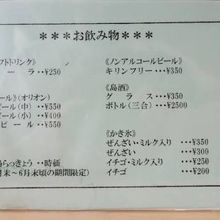 ***お飲み物***
フトドリンク】
ーラ・・¥250
ール】(オリオン)
ビール(中)・・¥550
ビール(小)・・¥400
ビール・・¥550
らっきょう・・時価
末~6月末頃の期間限定)
【ノンアルコールビール】
キリンフリー・・・¥350
【島酒】
グラス・・・¥350
ボトル(三合)・・¥2500
【かき氷】
ぜんざい・ミルク入り・・¥350
ぜんざい・・¥300
イチゴ・ミルク入り・・¥250
イチゴ・・¥200